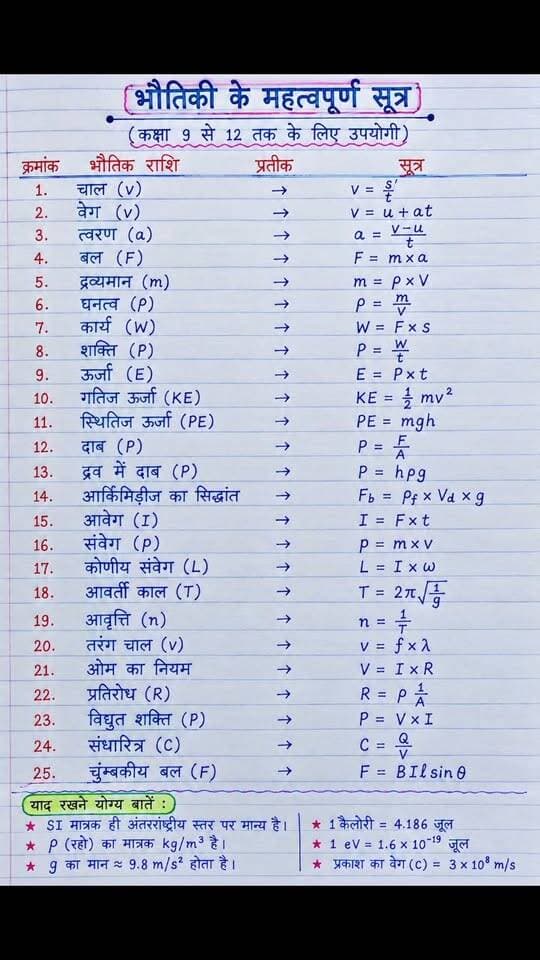 भौतिकी के महत्वपूर्ण सूत्र
(कक्षा 9 से 12 तक के लिए उपयोगी)
क्रमांक भौतिक राशि प्रतीक सूत्र
1. चाल (v) → v = s/t
2. वेग (v) → v = u + at
3. त्वरण (a) → a = (v-u)/t
4. बल (F) → F = m x a
5. द्रव्यमान (m) → m = ρ x V
6. घनत्व (ρ) → ρ = m/V
7. कार्य (W) → W = F x s
8. शक्ति (P) → P = W/t
9. ऊर्जा (E) → E = P x t
10. गतिज ऊर्जा (KE) → KE = 1/2 mv²
11. स्थितिज ऊर्जा (PE) → PE = mgh
12. दाब (P) → P = F/A
13. द्रव में दाब (P) → P = hρg
14. आर्किमिड़ीज का सिद्धांत → F_b = ρ_f x V_d x g
15. आवेग (I) → I = F x t
16. संवेग (p) → p = m x v
17. कोणीय संवेग (L) → L = I x ω
18. आवर्ती काल (T) → T = 2π√(1/g)
19. आवृत्ति (n) → n = 1/T
20. तरंग चाल (v) → v = f x λ
21. ओम का नियम → V = I x R
22. प्रतिरोध (R) → R = ρ 1/A
23. विद्युत शक्ति (P) → P = V x I
24. संधारित्र (C) → C = Q/V
25. चुंम्बकीय बल (F) → F = BIl sin θ
याद रखने योग्य बातें :
★ SI मात्रक ही अंतरराष्ट्रीय स्तर पर मान्य है।
★ ρ (रहो) का मात्रक kg/m³ है।
★ g का मान ≈ 9.8 m/s² होता है।
★ 1 कैलोरी = 4.186 जूल
★ 1 eV = 1.6 x 10⁻¹⁹ जूल
★ प्रकाश का वेग (C) = 3 x 10⁸ m/s